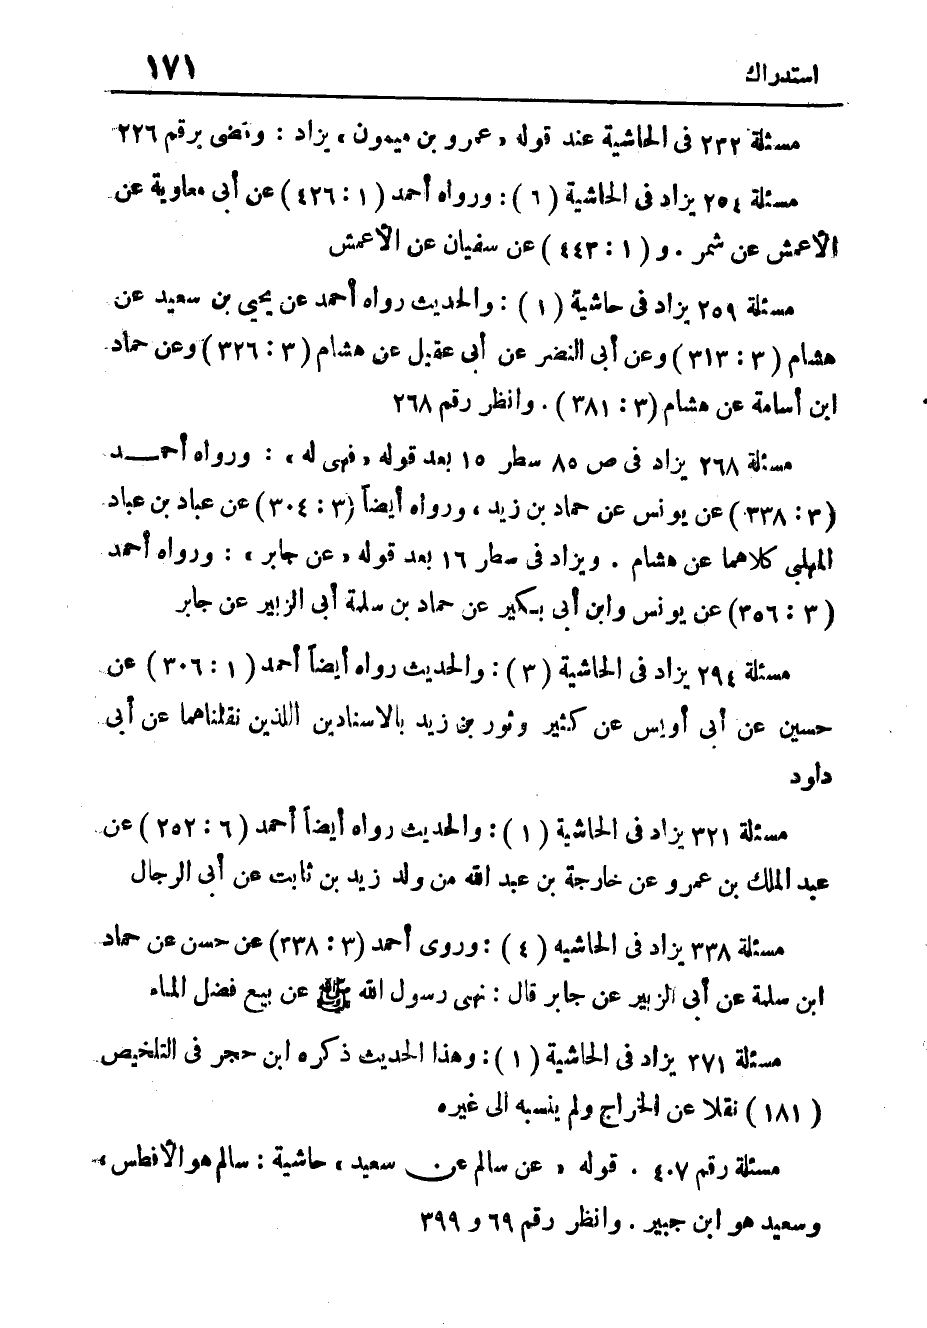 استدراك ١٧١
مسئلة ٢٣٢ فى الحاشية عند قوله «عمرو بن ميمون» يزاد : ومضى برقم ٢٢٦
مسئلة ٢٥٤ يزاد فى الحاشية (٦) : ورواه أحمد (١ : ٤٢٦) عن أبى معاوية عن
الأعمش عن شمر . و (١ : ٤٤٣) عن سفيان عن الأعمش
مسئلة ٢٥٩ يزاد فى حاشية (١) : والحديث رواه أحمد عن يحيى بن سعيد عن
هشام (٣ : ٣١٣) وعن أبى النضر عن أبى عقيل عن هشام (٣ : ٣٢٦) وعن حماد
ابن أسامة عن هشام (٣ : ٣٨١) . وانظر رقم ٢٦٨
مسئلة ٢٦٨ يزاد فى ص ٨٥ سطر ١٥ بعد قوله «فهى له» : ورواه أحمــد
(٣ : ٣٣٨) عن يونس عن حماد بن زيد ، ورواه أيضاً (٣ : ٣٠٤) عن عباد بن عباد
المهلبى كلاهما عن هشام . ويزاد فى سطر ١٦ بعد قوله «عن جابر» : ورواه أحمد
(٣ : ٣٥٦) عن يونس وابن أبى بكير عن حماد بن سلمة أبى الزبير عن جابر
مسئلة ٢٩٤ يزاد فى الحاشية (٣) : والحديث رواه أيضاً أحمد (١ : ٣٠٦) عن
حسين عن أبى أويس عن كثير وثور بن زيد بالاسنادين اللذين نقلناهما عن أبى
داود
مسئلة ٣٢١ يزاد فى الحاشية (١) : والحديث رواه أيضاً أحمد (٦ : ٢٥٢) عن
عبد الملك بن عمرو عن خارجة بن عبد الله من ولد زيد بن ثابت عن أبى الرجال
مسئلة ٣٣٨ يزاد فى الحاشيه (٤) : وروى أحمد (٣ : ٣٣٨) عن حسن عن حماد
ابن سلمة عن أبى الزبير عن جابر قال : نهى رسول الله ﷺ عن بيع فضل الماء
مسئلة ٣٧١ يزاد فى الحاشية (١) : وهذا الحديث ذكره ابن حجر فى التلخيص
(١٨١) نقلا عن الخراج ولم ينسبه الى غيره
مسئلة رقم ٤٠٧ . قوله «عن سالم عن سعيد» حاشية : سالم هو الأفطس ،
وسعيد هو ابن جبير . وانظر رقم ٦٩ و ٣٩٩